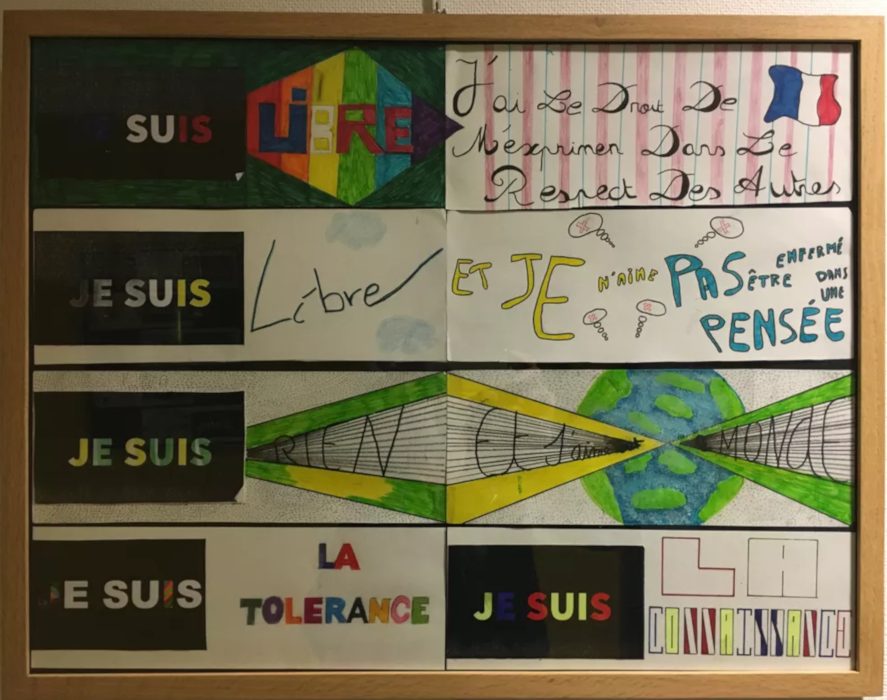 JE SUIS LIBRE
J'ai Le Droit De
M'exprimer Dans Le
Respect Des Autres
JE SUIS Libre
ET JE N'AIME PAS ÊTRE ENFERMÉ DANS UNE PENSÉE
JE SUIS RIEN Et J'aime MONDE
JE SUIS
LA
TOLERANCE
JE SUIS
LA
CONNAISSANCE